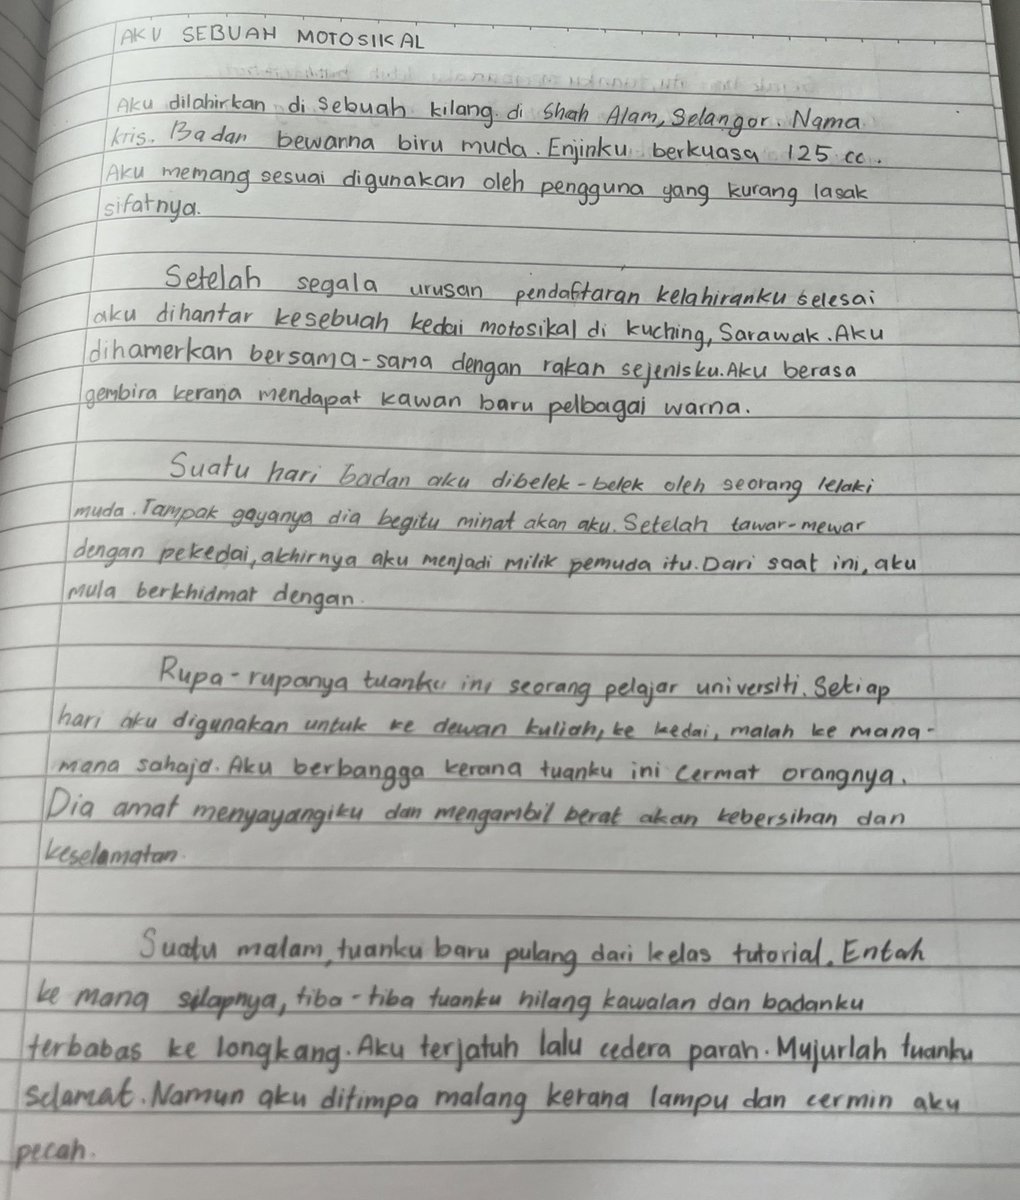 AKU SEBUAH MOTOSIKAL
Aku dilahirkan di sebuah kilang di Shah Alam, Selangor. Nama
kris. Badan bewanna biru muda. Enjinku berkuasa 125 cc.
Aku memang sesuai digunakan oleh pengguna yang kurang lasak
sifatnya.
Setelah segala urusan pendaftaran kelahiranku selesai
aku dihantar kesebuah kedai motosikal di kuching, Sarawak. Aku
dihamerkan bersama-sama dengan rakan sejenisku. Aku berasa
gembira kerana mendapat kawan baru pelbagai warna.
Suatu hari badan aku dibelek-belek oleh seorang lelaki
muda. Tampak gayanya dia begitu minat akan aku. Setelah tawar-mewar
dengan pekedai, akhirnya aku menjadi milik pemuda itu. Dari saat ini, aku
mula berkhidmat dengan.
Rupa-rupanya tuanku ini seorang pelajar universiti. Setiap
hari aku digunakan untuk ke dewan kuliah, ke kedai, malah ke mana-
mana sahaja. Aku berbangga kerana tuanku ini cermat orangnya.
Dia amat menyayangiku dan mengambil berat akan kebersihan dan
keselamatan.
Suatu malam, tuanku baru pulang dari kelas tutorial. Entah
ke mana silapnya, tiba-tiba tuanku hilang kawalan dan badanku
terbabas ke longkang. Aku terjatuh lalu cedera parah. Mujurlah tuanku
selamat. Namun aku ditimpa malang kerana lampu dan cermin aku
pecah.